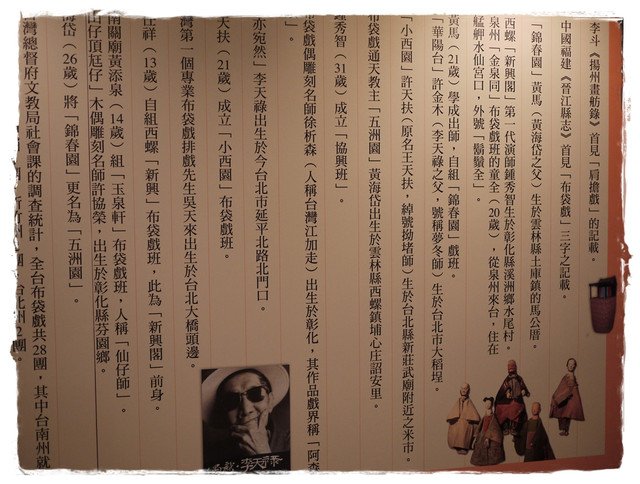 李斗《揚州畫舫錄》首見「肩擔戲」的記載。
中國福建《晉江縣志》首見「布袋戲」三字之記載。
「錦春園」黃馬（黃海岱之父）生於雲林縣土庫鎮的馬公厝。
西螺「新興閣」第一代演師鍾秀智生於彰化縣溪洲鄉水尾村。
泉州「金泉同」布袋戲班的童全（20歲），從泉州來台，住在
艋舺水仙宮口，外號「鬍鬚全」。
黃馬（21歲）學成出師，自組「錦春園」戲班。
「華陽台」許金木（李天祿之父，號稱夢冬師）生於台北市大稻埕。
「小西園」許天扶（原名王天扶，綽號拗堵師）生於台北縣新莊武廟附近之米市。
布袋戲通天教主「五洲園」黃海岱出生於雲林縣西螺鎮埔心庄詔安里。
鍾秀智（31歲）成立「協興班」。
布袋戲偶雕刻名師徐析森（人稱台灣江加走）出生於彰化，其作品戲界稱「阿森
」。
亦宛然」李天祿出生於今台北市延平北路北門口。
天扶（21歲）成立「小西園」布袋戲班。
灣第一個專業布袋戲排戲先生吳天來出生於台北大橋頭邊。
任祥（13歲）自組西螺「新興」布袋戲班，此為「新興閣」前身。
南關廟黃添泉（14歲）組「玉泉軒」布袋戲班，人稱「仙仔師」。
山仔頂尪仔」木偶雕刻名師許協榮，出生於彰化縣芬園鄉。
海岱（26歲）將「錦春園」更名為「五洲園」。
灣總督府文教局社會課的調查統計，全台布袋戲共28團，其中台南州就
台北州2團。
戲·李天祿